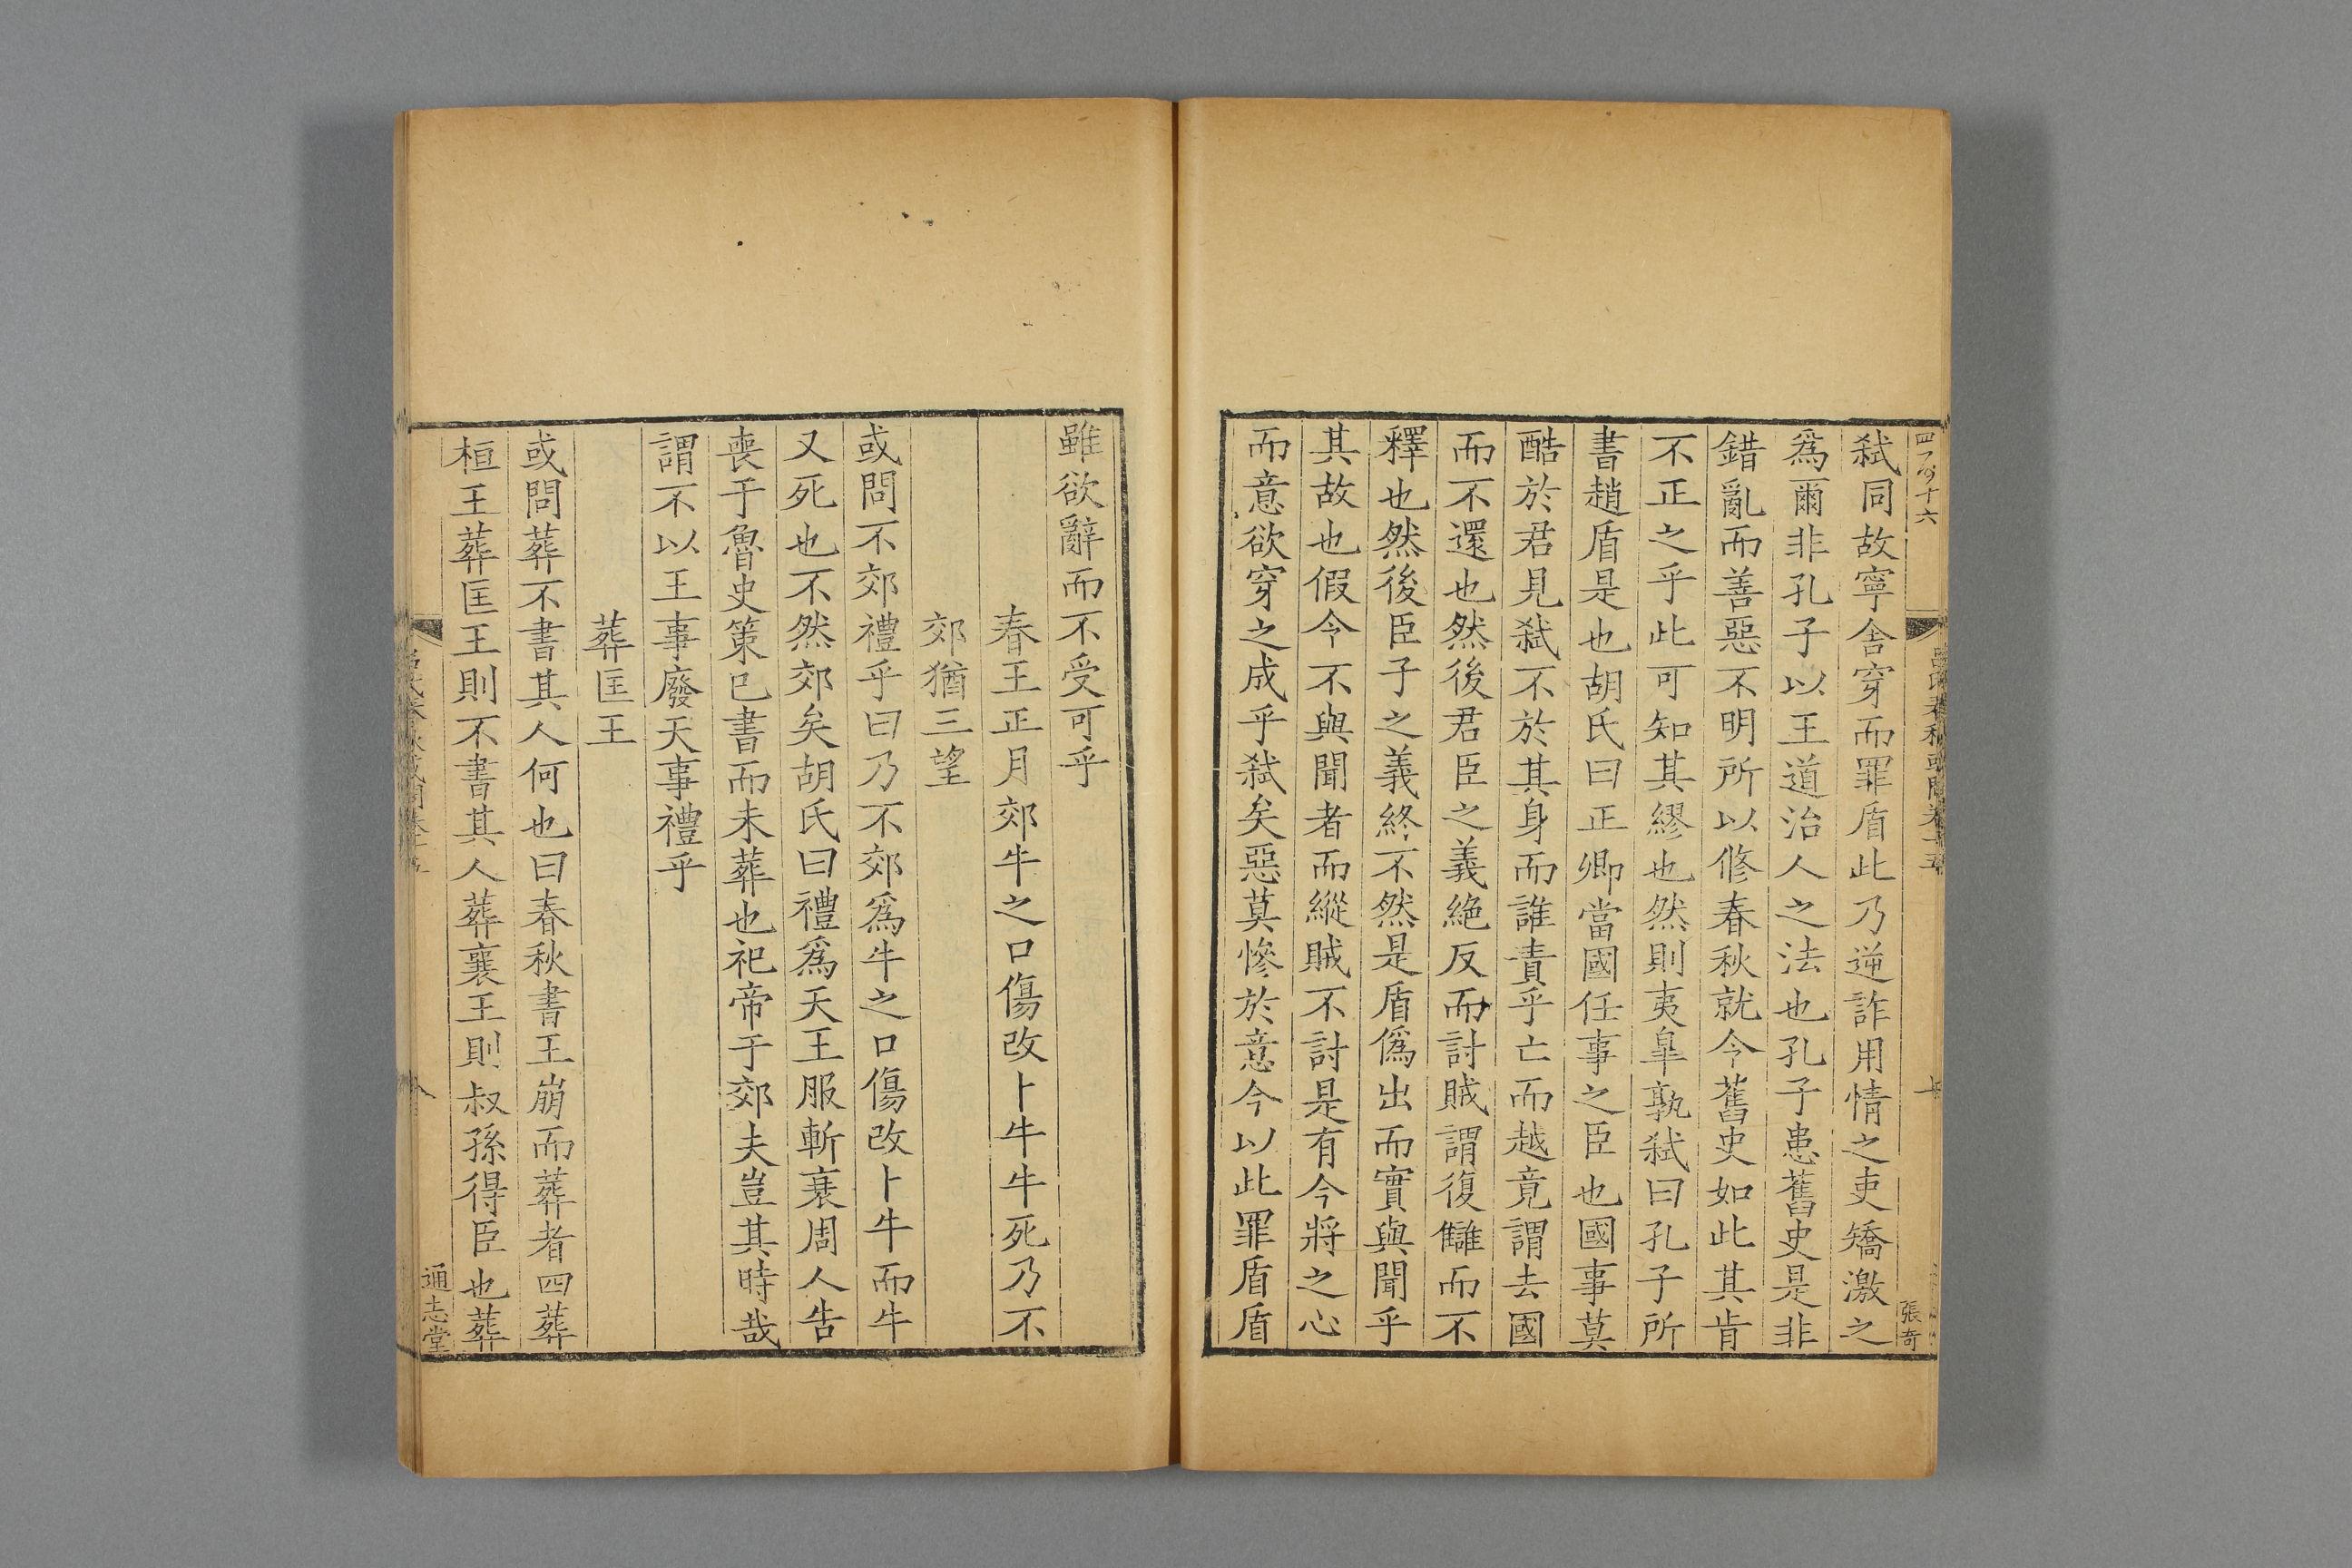 弑同故寧舍穿而罪盾此乃逆詐用情之吏矯激之
爲爾非孔子以王道治人之法也孔子患舊史是非
錯亂而善惡不明所以修春秋就今舊史如此其肯
不正之乎此可知其繆也然則夷臯孰弑曰孔子所
書趙盾是也胡氏曰正卿當國任事之臣也國事莫
酷於君見弑不於其身而誰責乎亡而越竟謂去國
而不還也然後君臣之義絶反而討賊謂復讎而不
釋也然後臣子之義終不然是盾僞出而實與聞乎
其故也假令不與聞者而縱賊不討是有今將之心
而意欲穿之成乎弑矣惡莫慘於意今以此罪盾盾
張奇
雖欲辭而不受可乎
春王正月郊牛之口傷改卜牛牛死乃不
郊猶三望
或問不郊禮乎曰乃不郊爲牛之口傷改卜牛而牛
又死也不然郊矣胡氏曰禮爲天王服斬衰周人告
喪于魯史策已書而未葬也祀帝于郊夫豈其時哉
謂不以王事廢天事禮乎
葬匡王
或問葬不書其人何也曰春秋書王崩而葬者四葬
桓王葬匡王則不書其人葬襄王則叔孫得臣也葬
八
通志堂